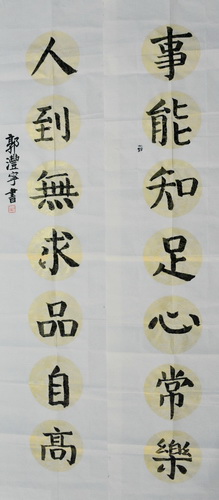 事能知足心常樂
人到無求品自高
郭灃宇書